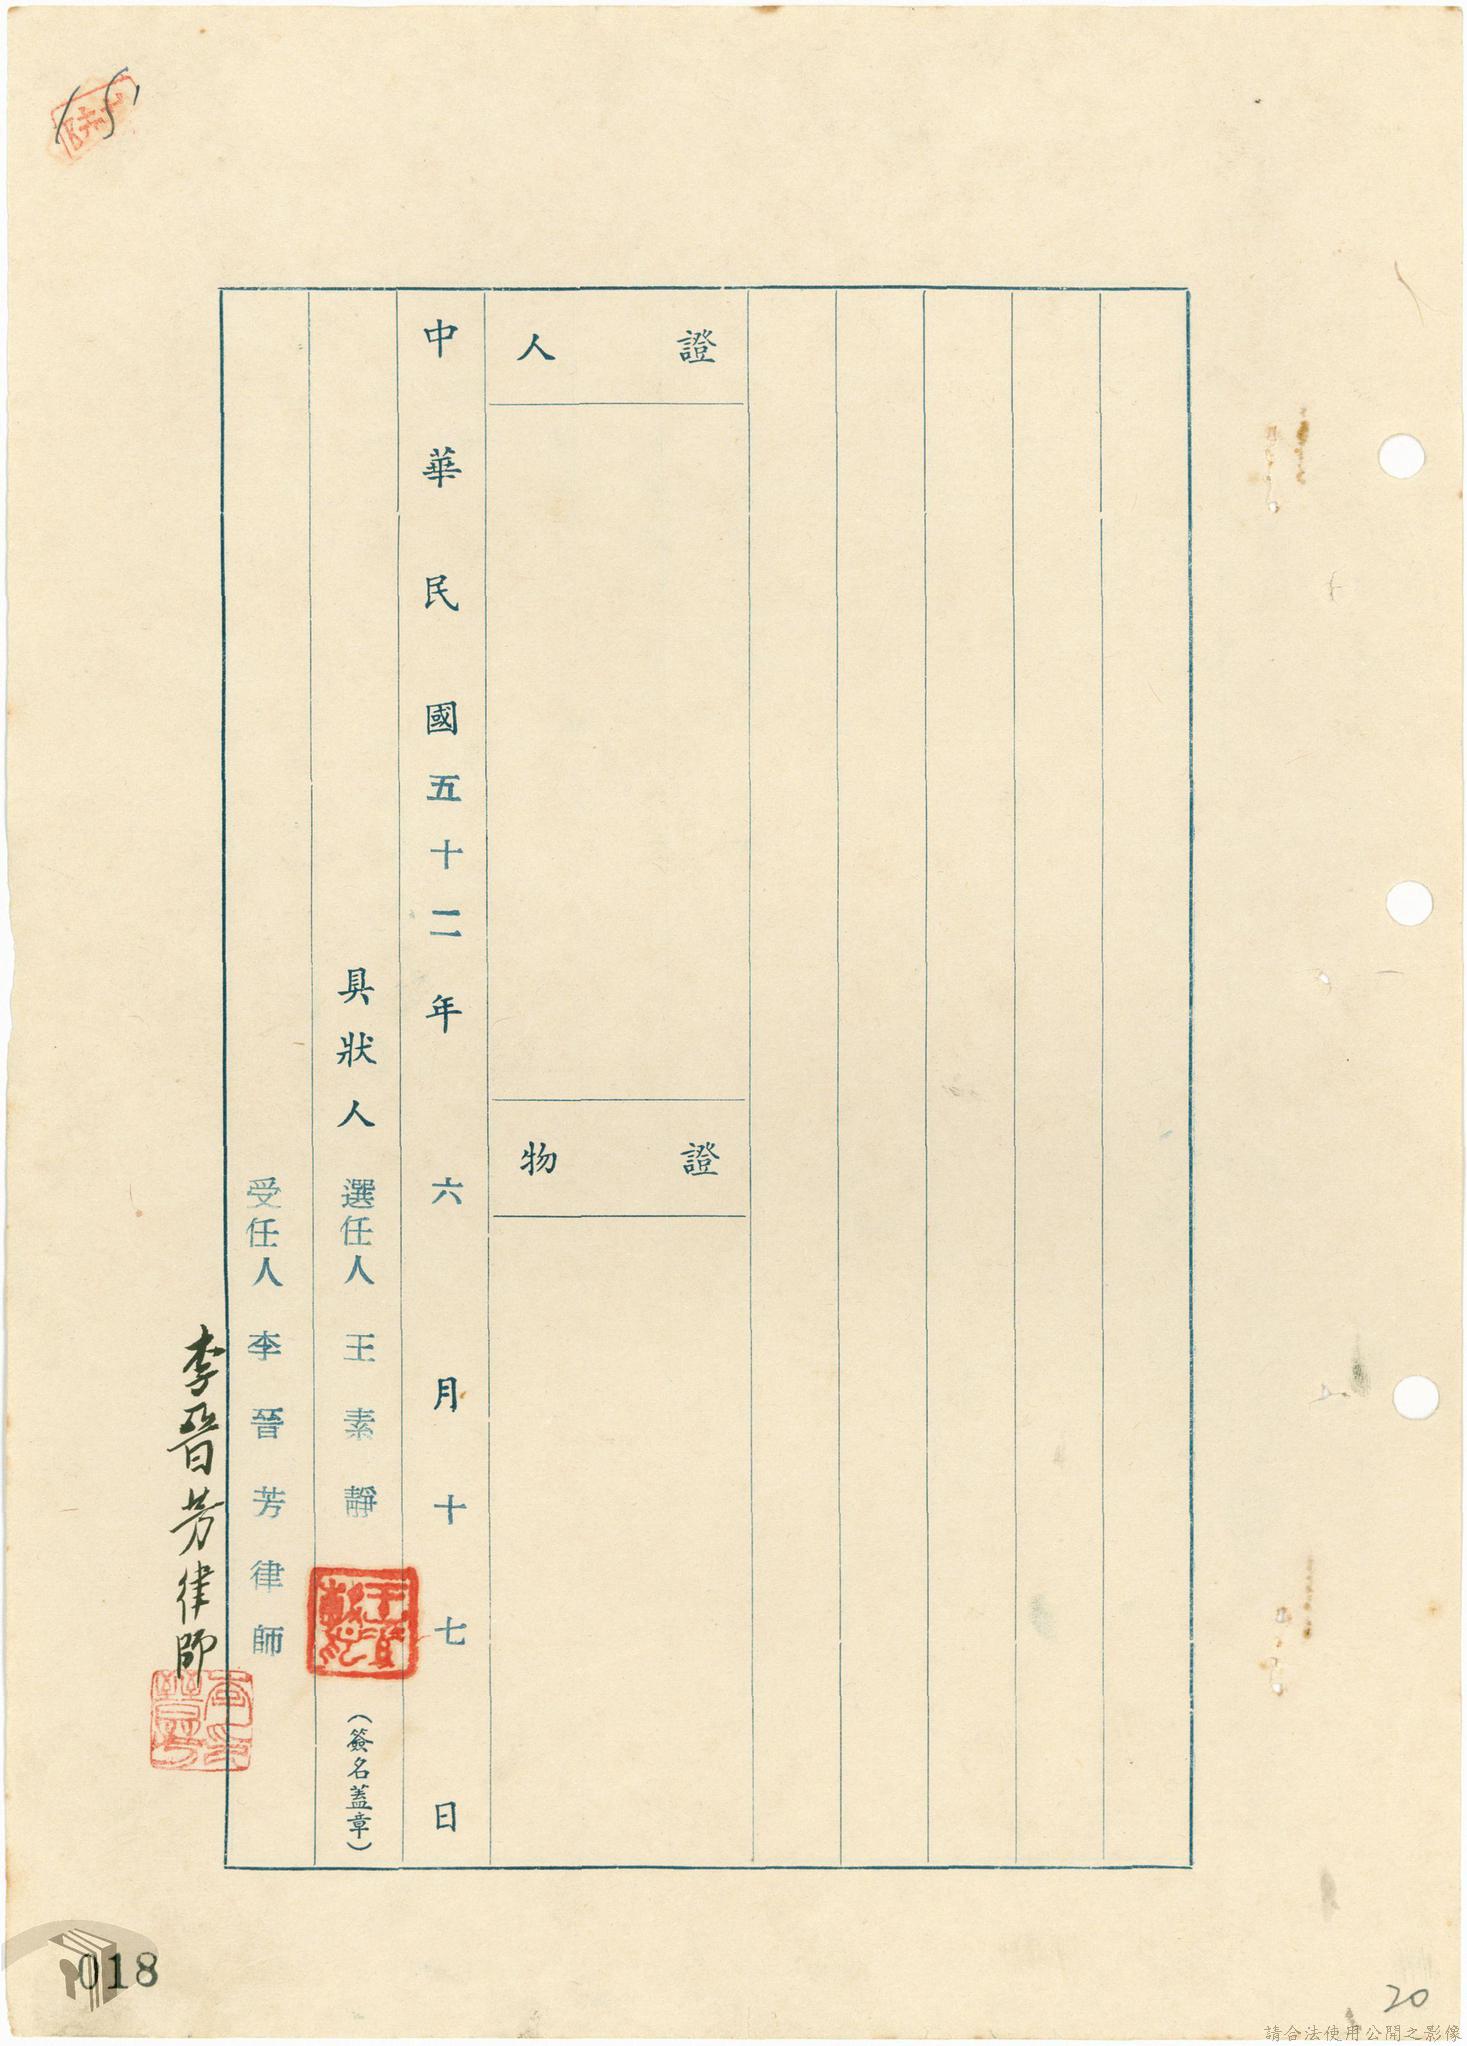 15
證人
證物
中華民國五十二年六月十七日
具狀人 選任人 王素靜 (簽名蓋章)
受任人 李晉芳律師
李晉芳律師
018
20
請合法使用公開之影像